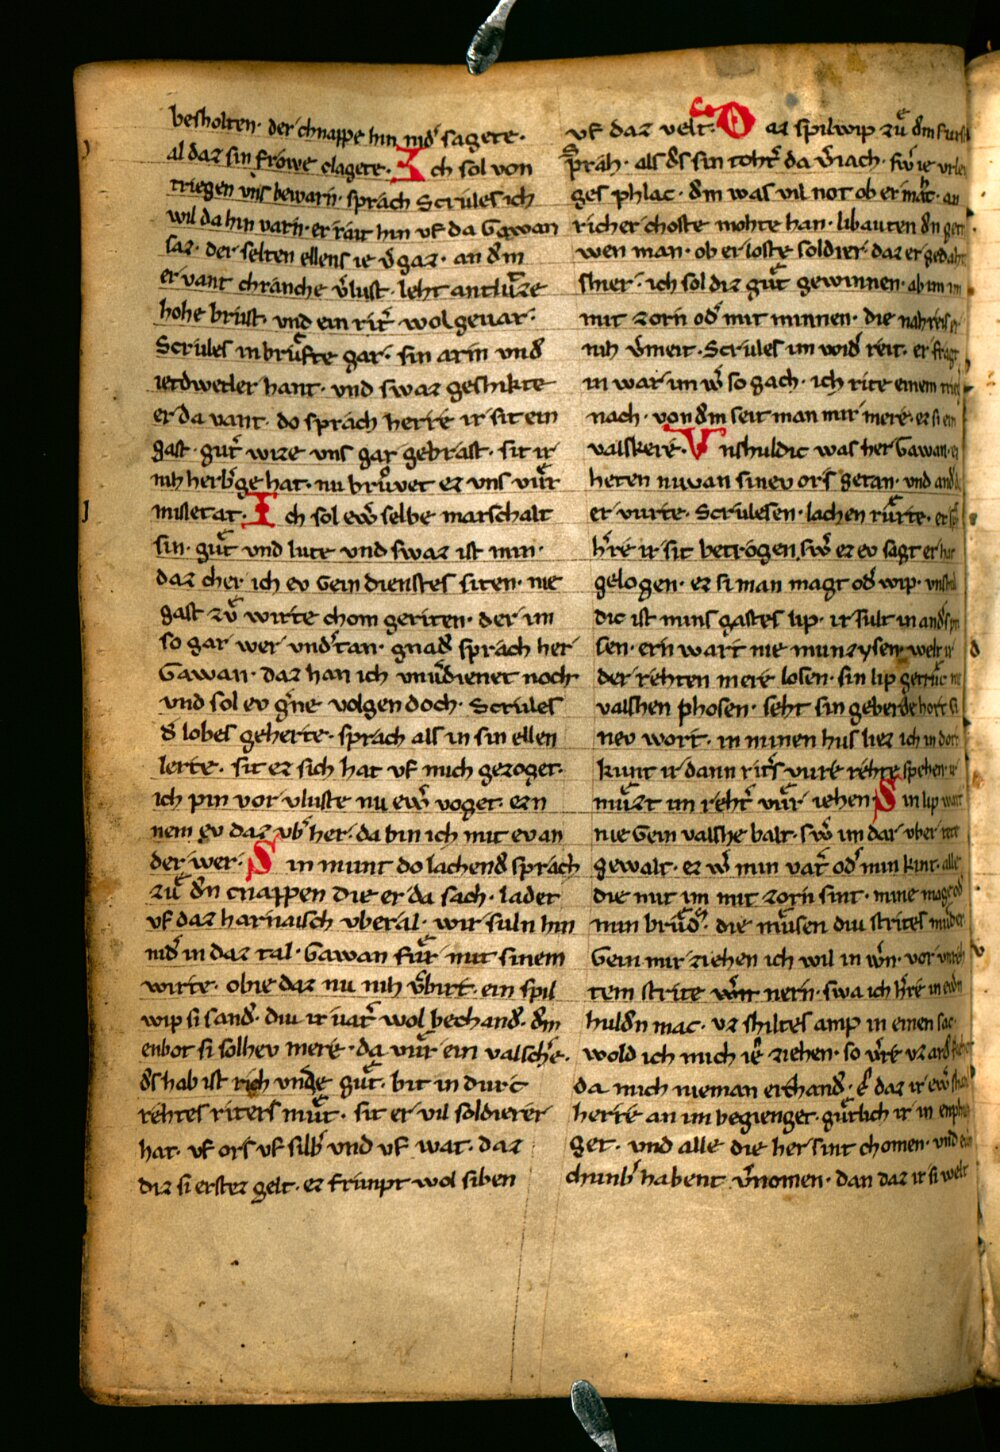 besholten· der chnappe hin nidͤ sagete·
al daz sin frowe clagete· Ich sol von
triegen vnͥs bewarn· sprach Scrules ich
wil da hin varn· er rait hin vf da Gawan
saz· der selten ellens ie v̓gaz· an dͤm
er vant chranche v̓lust· leht antluͤzze
hohe brust· vnd ein rit̓ wol geuar·
Scrules in bruͤfte gar· sin arm vnd̓
ietdweder hant· vnd swaz geshikte
er da vant· do sprach herre ir sit ein
gast· guͤt̓ wize vns gar gebrast· sit ir
niht herb̓ge hat· nu bruͦvet ez vns vuͤr
missetat· Ich sol ew̓ selbe marschalt
sin· guͤt vnd lute vnd swaz ist min·
daz cher ich ev Gein dienstes siten· nie
gast zuͤ wirte chom geriten· der im
so gar wer vnd̓tan· gnad̓ sprach her
Gawan· daz han ich vnu̓dienet noch·
vnd sol ev g̓ne volgen doch· Scrules
d̓ lobes geherte· sprach als in sin ellen
lerte· sit ez sich hat vf mich gezoget·
ich pin vor vluste nu ew̓ voget· ezn
nem ev daz vb̓ her· da bin ich mit ev an
der wer· Sin munt do lachend̓ sprach
zuͤ d̓n cnappen die er da sach· ladet
vf daz harnaisch vberal· wir suln hin
nid̓ in daz tal· Gawan fuͤr mit sinem
wirte· obie daz nu niht v̓birt· ein spil
wip si sand̓· diu ir uat̓ wol bechand̓· d̓m
enbot si solhev mere· da vuͤr ein valsch̓e·
d̓s hab ist rich vnde guͤt· bit in durc
rehtes riters muͤt· sit er vil soldierer
hat· vf ors vf silb̓ vnd vf wat· daz
diz si erstez gelt· ez frumpt wol siben
vf daz velt· Daz spilwip zuͤ d̓m furst
sprah· als d̓s sin toht̓ da v̓iach· sw̓ ie vrleu
ges phlac· d̓m was vil not ob er maht· an
richer choste mohte han· libauten d̓n getr
wen man· ob er loste soldier· daz er gedaht
shier· ich sol diz guͤt gewinnen· ab im im
mit zorn od̓ mit minnen· die nahreis er
niht v̓meit· Scrules im wid̓ reit· er fragt
in war im w̓ so gach· ich rite einem trieg
nach· von d̓m seit man mir mere· ez si ein
valskere· Vnshuldic was her Gawan·
heten niwan sinev ors getan· vnd and̓s
er vurte· Scrulesen· lachen ruͤrte·
h̓re ir sit betrogen sw̓ ez ev sagt er hat
gelogen· ez si man magt od̓ wip· vnshul
dic ist mins gastes lip· ir sult in and̓s pri
sen· ern wart nie munzysen· welt ir
der rehten mere losen· sin lip getruͤc nie
valshen phosen· seht sin geberde hort si
nev wort· in minen hus liez ich in dort
kunt ir dann rit̓s vure rehte spehen· ir
muͤzt im reht̓ vuͤr iehen· Sin lip wart
nie Gein valshe balt· sw̓ im dar vber tuet
gewalt· ez w̓ min vat̓ od̓ min kint· alle
die mit im mit zorn sint· mine mage od̓
min bruͤd̓· die muͤsen diu strites ruͤder
Gein mir ziehen ich wil in w̓n· vor vnreh
tem strite nern· swa ich h̓re in ewern
huld̓n mac· vz shiltes amp in einen sac·
wold ich mich ie̓ ziehen· so v̓re vz ard̓ fliehen
da mich nieman erchand̓· e̓ daz ir ew̓ shand
herre an im begienget· guͤtlich ir in enpha
get· vnd alle die her sint chomen· vnd ein
chunb̓ habent v̓nomen· dan daz ir si welt